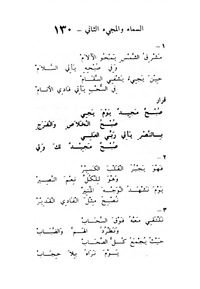 السماء والمجيء الثاني - ١٣٠
١ -
مشرق الشمس يمحو الآلام
وفي صبحه يأتي السلام
حين يجيء يشفي السقام
في السحب يأتي فادي الأنام
قرار
صبح مجيد يوم يجي
صبح الخلاص والفرج
بالنصر يأتي ربي العلي
صبح مجيد لك ولي
٢ -
فهو يجبر القلب الكسير
وهو للكل نعم النصير
يوم نشهد الوجه المنير
نصبح مثل الفادي القدير
٣ -
نلتقي معه فوق السحاب
ونطرد الهم والضباب
حيث يجمع كل الصحاب
يوم نراه بلا حجاب